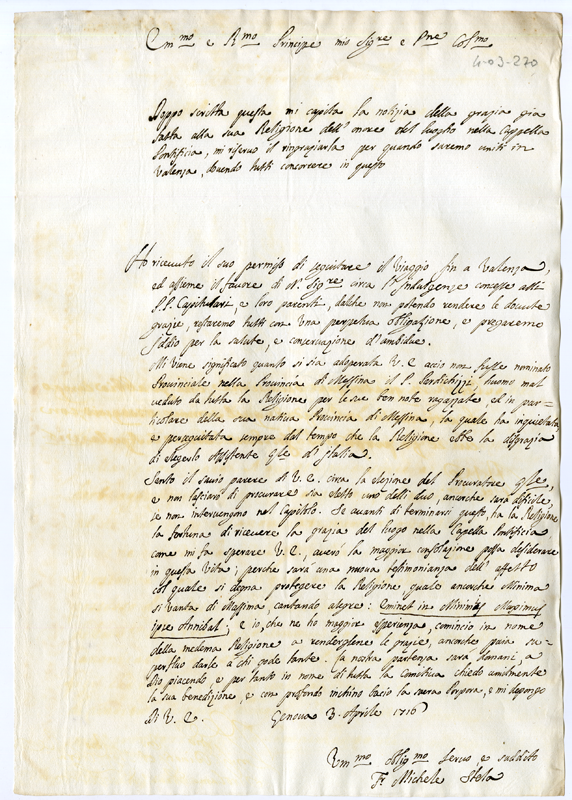 Em.mo e R.mo Principe mio Sig.re e P.ne Col.mo
4-03-270
Doppo scritta questa mi capita la notizia della grazia già
fatta alla sua Religione dell'onore del luogho nella Cappella
Pontificia, mi riservo il ringraziarla per quando saremo uniti in
Valenza, dovendo tutti concorrere in questo
Ho ricevuto il suo permisso di seguitare il Viaggio fin a Valenza,
ed assieme il favore di N. Sig.re circa l'Indulgenze concesse alli
P.P. Capitolari, e loro parenti, dalche non potendo rendere le dovute
grazie, restaremo tutti con una perpetua obligazione, e pregaremo
Iddio per la salute, e conservazione d'ambidue.
Mi viene significato quanto si sia adoperata V. E. acciò non fusse nominato
Provinciale nella Provincia di Messina il P. huomo mal
veduto da tutta la Religione per le sue ben note ed in par=
ticolare della sua nativa Provincia di Messina, la quale ha inquietata
e perseguitata sempre dal tempo che la Religione ebbe la disgrazia
di elegerlo Assistente G.le d'Italia.
Sento il savio parere di V. E. circa la elezione del Procuratore G.le,
e non lasciarò di procurare sia eletto uno delli due, ancorche sarà difficile,
se non intervengono nel Capitolo. Se avanti di terminarsi questo ha la Religione
la fortuna di ricevere la grazia del luogo nella Capella Pontificia
come mi fa sperare V. E., averò la maggior consolazione possa desiderare
in questa Vita; perche sarà una nuova testimonianza dell'affetto
col quale si degna protegere la Religione, quale ancorche Minima
si vanta di Massima, cantando alegre: Eminet in Minimis Maximus
ipse Annibal; e io, che ne ho maggior esperienza, comincio in nome
della medema Religione a rendergliene le grazie, ancorche paia su=
perfluo darle a chi gode tante. La nostra partenza sarà domani, a
Dio piacendo, e per tanto in nome di tutta la Comitiva chiedo umilmente
la sua benedizione, e con profondo inchino bacio la sacra Porpora, e mi depongo
di V. E. Genova 3. Aprile 1716
Um.mo Oblig.mo Servo e suddito
Fr. Michele Stela